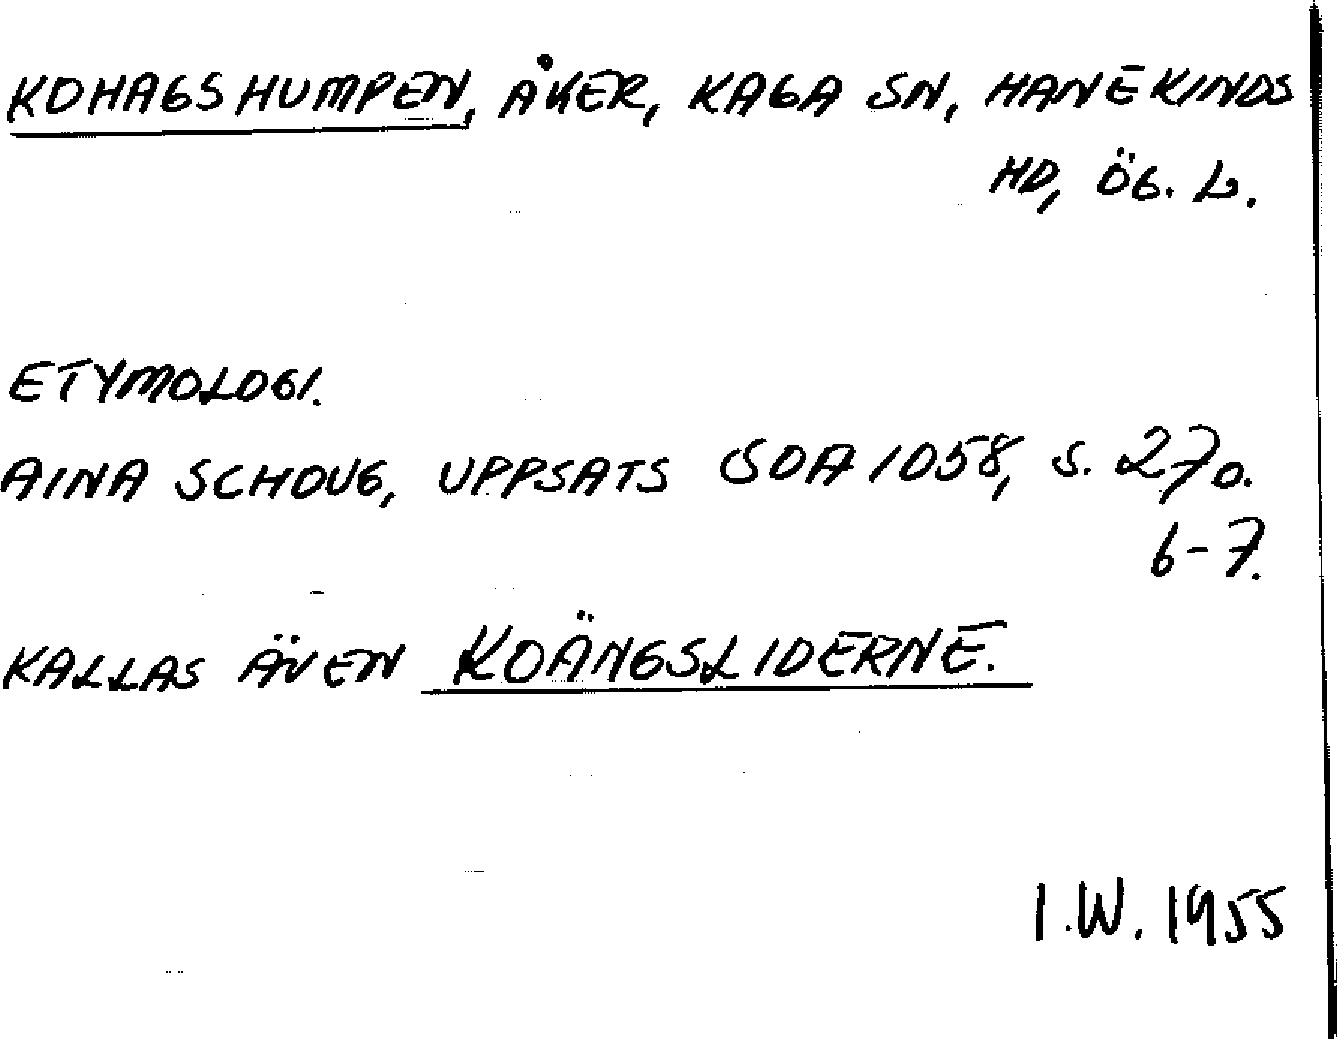 KOHAGSHUMPEN, ÅKER, KAGA SN, HANEKINDS
HD, ÖG. L.
ETYMOLOGI.
AINA SCHOUG, UPPSATS SOA 1058, S. 270.
6-7.
KALLAS ÄVEN KOÄNGSLIDERNE.
I.W. 1955